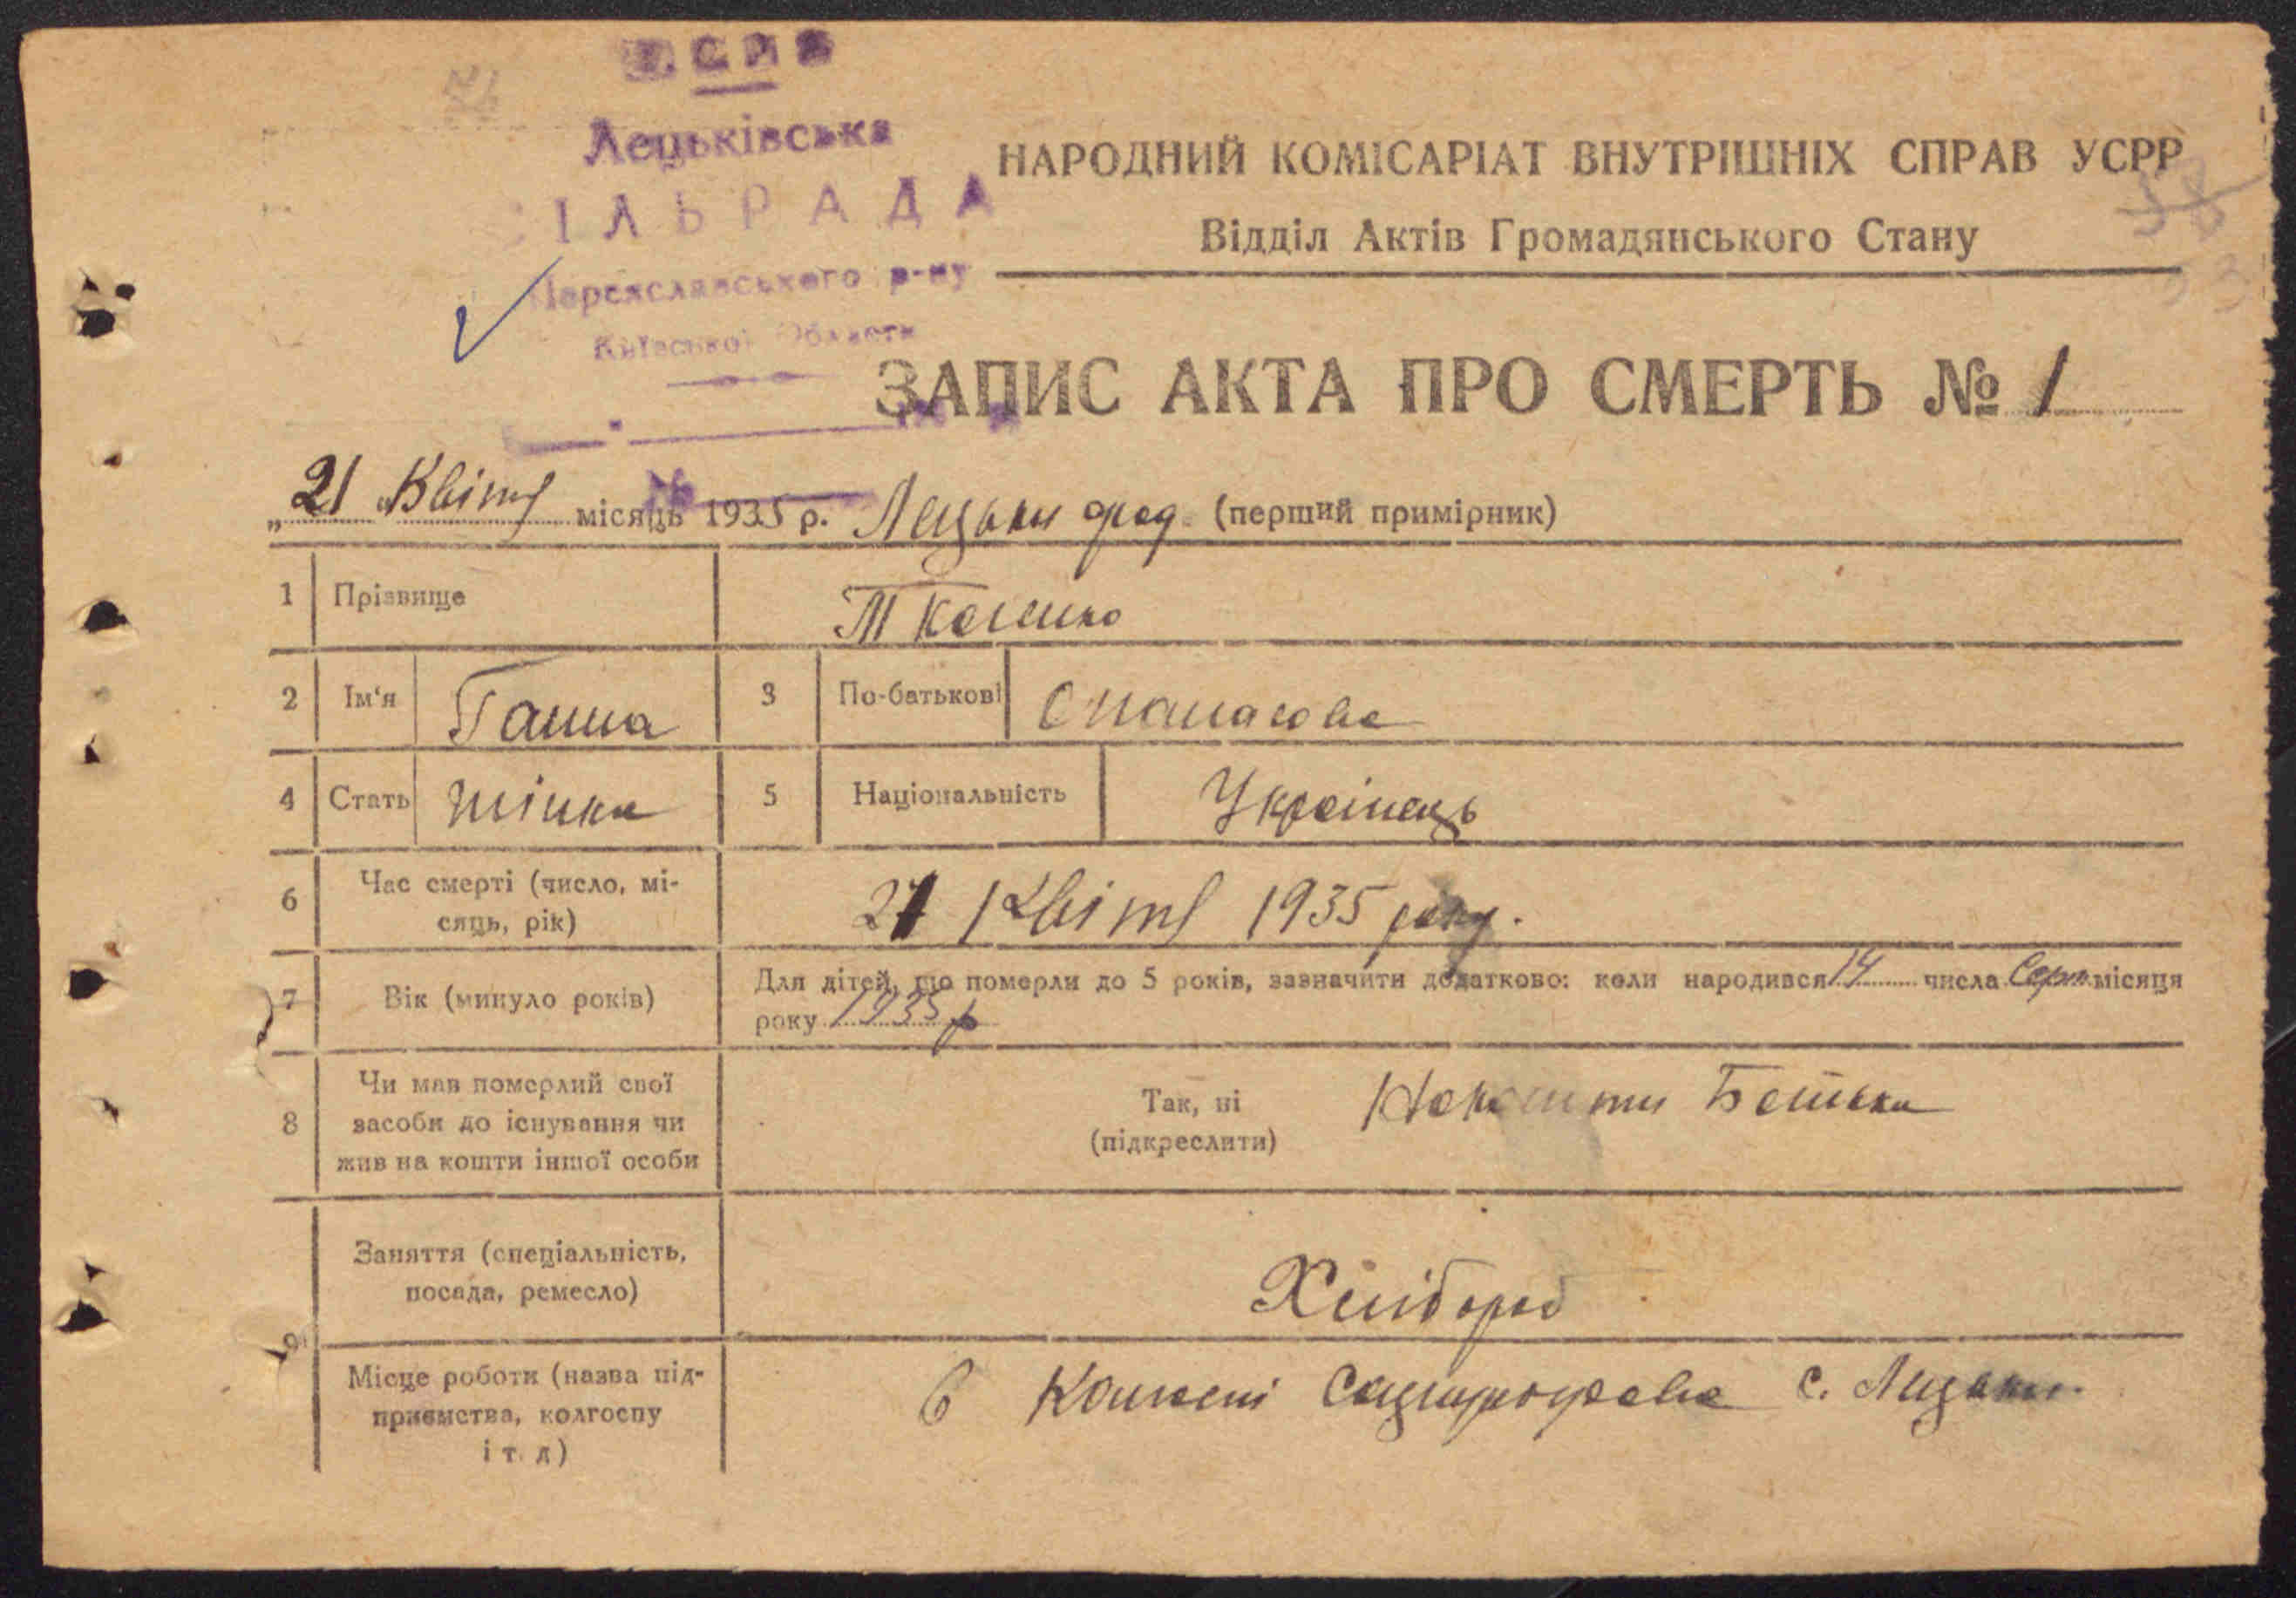 У.С.Р.Р
Лецьківська
СІЛЬРАДА
Переяславського р-ну
Київської Области
НАРОДНИЙ КОМІСАРІАТ ВНУТРІШНІХ СПРАВ УСРР
Відділ Актів Громадянського Стану
ЗАПИС АКТА ПРО СМЕРТЬ № 1
№
„21 " Квітня місяць 1935 р. Лецьки (перший примірник)
1 Прізвище Ткаченко
2 Ім'я Ганна 3 По-батькові Опанасова
4 Стать жінка 5 Національність Українець
6 Час смерті (число, мі-
сяць, рік) 21 Квітня 1935 року.
7 Вік (минуло років) Для дітей, що померли до 5 років, зазначити додатково: коли народився 14 числа Серп місяця
року 1935 р
8 Чи мав померлий свої
засоби до існування чи
жив на кошти іншої особи
Так, ні
(підкреслити)
На кошти Батька
9 Заняття (спеціальність,
посада, ремесло) Хлібороб
Місце роботи (назва під-
приємства, колгоспу
і т. д) в с. Лецьки.